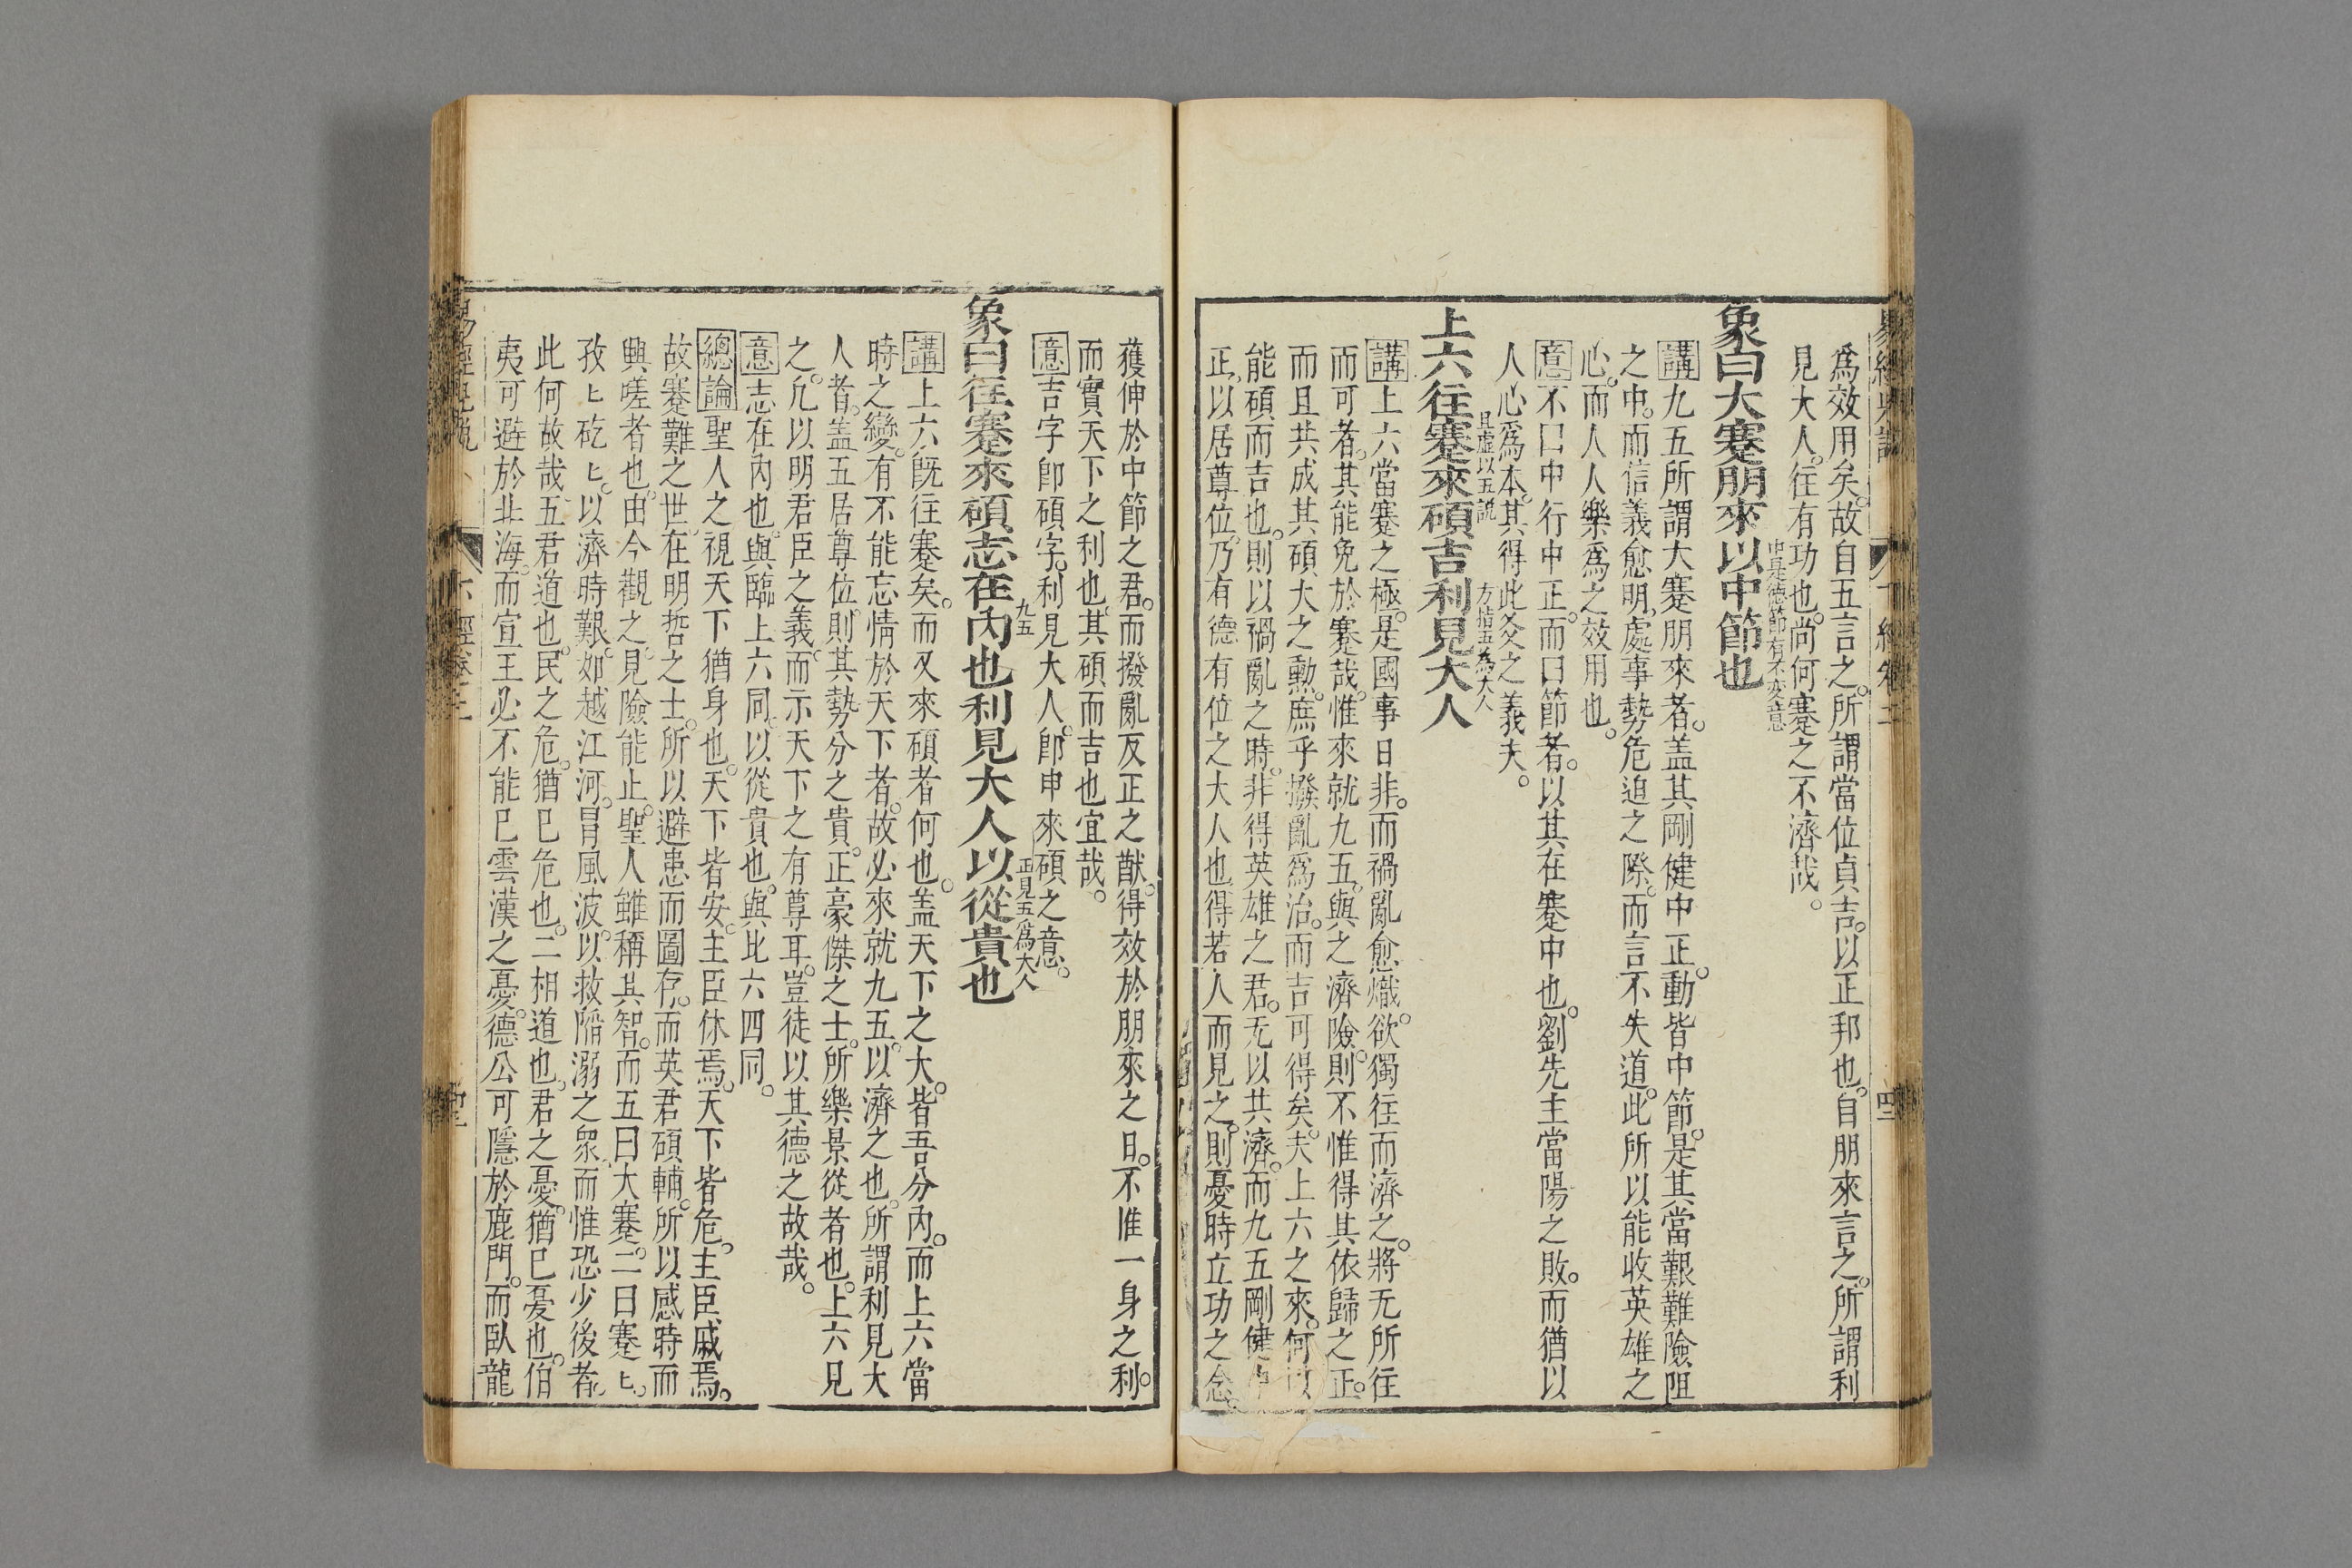 爲效用矣。故自五言之。所謂當位貞吉。以正邦也。自朋來言之。所謂利
見大人。往有功也。尚何蹇之不濟哉。
中是德節有不変意
象曰大蹇朋來以中節也
講九五所謂大蹇朋來者。盖其剛健中正。動皆中節。是其當艱難險阻
之中。而信義愈明。處事勢危迫之際。而言不失道。此所以能收英雄之
心。而人人樂爲之效用也。
意不曰中行中正。而曰節者。以其在蹇中也。劉先主當陽之敗。而猶以
人心爲本。其得此爻之義夫。
且虛以五説 方指五爲大人
上六往蹇來碩吉利見大人
講上六當蹇之極。是國事日非。而禍亂愈熾。欲獨往而濟之。將无所往
而可者。其能免於蹇哉。惟來就九五。與之濟險。則不惟得其依歸之正。
而且共成其碩大之勲。庶乎撥亂爲治。而吉可得矣。夫上六之來。何以
能碩而吉也。則以禍亂之時。非得英雄之君。无以共濟。而九五剛健中
正。以居尊位。乃有德有位之大人也。得若人而見之。則憂時立功之念。
獲伸於中節之君。而撥亂反正之猷。得效於朋來之日。不惟一身之利。
而實天下之利也。其碩而吉也宜哉。
意吉字卽碩字。利見大人。卽申來碩之意。
九五 正見五爲大人
象曰往蹇來碩志在內也利見大人以從貴也
講上六旣往蹇矣。而又來碩者何也。盖天下之大。皆吾分內。而上六當
時之變。有不能忘情於天下者。故必來就九五。以濟之也。所謂利見大
人者。盖五居尊位。則其勢分之貴。正豪傑之士。所樂景從者也。上六見
之。允以明君臣之義。而示天下之有尊耳。豈徒以其德之故哉。
意志在內也。與臨上六同。以從貴也。與比六四同。
總論聖人之視天下猶身也。天下皆安。主臣休焉。天下皆危。主臣戚焉。
故蹇難之世。在明哲之士。所以避患而圖存。而英君碩輔。所以感時而
興嗟者也。由今觀之。見險能止。聖人雖稱其智。而五曰大蹇。二曰蹇〻。
孜〻矻〻。以濟時艱。如越江河。冒風波。以救陷溺之衆。而惟恐少後者。
此何故哉。五君道也。民之危。猶已危也。二相道也。君之憂。猶已憂也。伯
夷可避於北海。而宣王必不能已雲漢之憂。德公可隱於鹿門。而臥龍